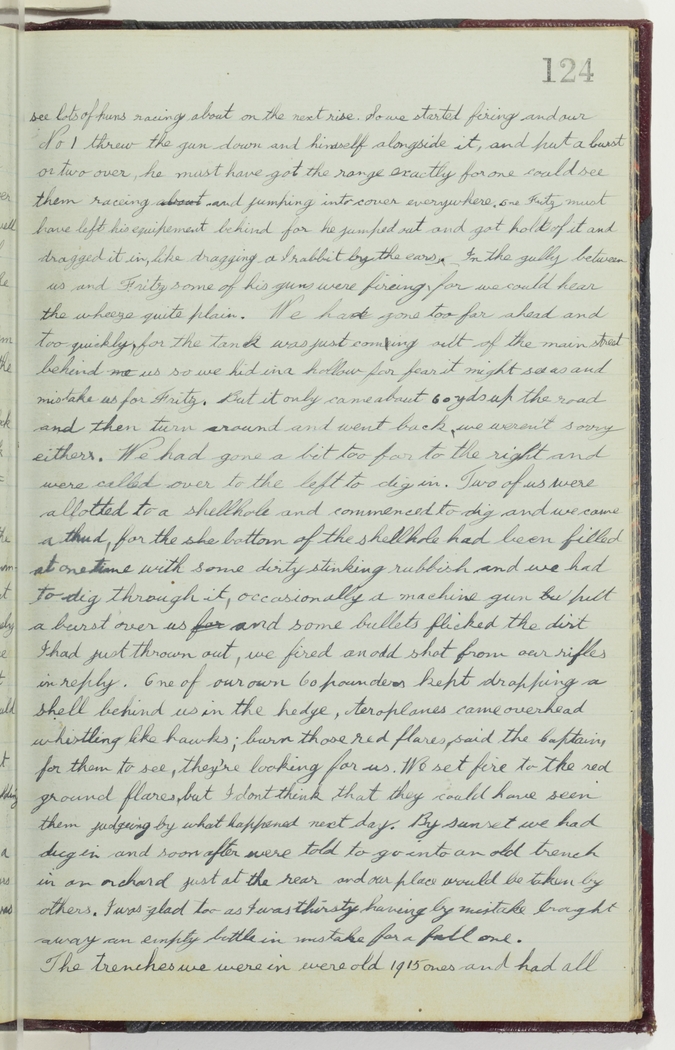 124
see lots of huns racing about on the next rise. So we started firing and our
No 1 threw the gun down and himself alongside it, and put a burst
or two over, he must have got the range exactly for one could see
them racing about and jumping into cover everywhere, one Fritz must
have left his equipement behind for he jumped out and got hold of it and
dragged it in, like dragging a rabbit by the ears. In the gully between
us and Fritz some of his guns were fireing, for we could hear
the wheeze quite plain. We had gone too far ahead and
too quickly, for the tank was just coming out of the main street
behind me us so we hid in a hollow for fear it might see us and
mistake us for Fritz. But it only came about 60 yds up the road
and then turn around and went back, we weren't sorry
either. We had gone a bit too far to the right and
were called over to the left to dig in. Two of us were
allotted to a shellhole and commenced to dig and we came
a thud, for the she bottom of the shellhole had been filled
at one time with some dirty stinking rubbish and we had
to dig through it, occasionally a machine gun bu put
a burst over us for and some bullets flicked the dirt
I had just thrown out, we fired an odd shot from our rifles
in reply. One of our own 60 pounders kept dropping a
shell behind us in the hedge, Aeroplanes came overhead
whistling like hawks; burn those red flares, said the Captain,
for them to see, they're looking for us. We set fire to the red
ground flares, but I dont think that they could have seen
them judgeing by what happened next day. By sunset we had
dug in and soon after were told to go into an old trench
in an orchard just at the rear and our place would be taken by
others. I was glad too as I was thirsty having by mistake brought
away an empty bottle in mistake for a full one.
The trenches we were in were old 1915 ones and had all